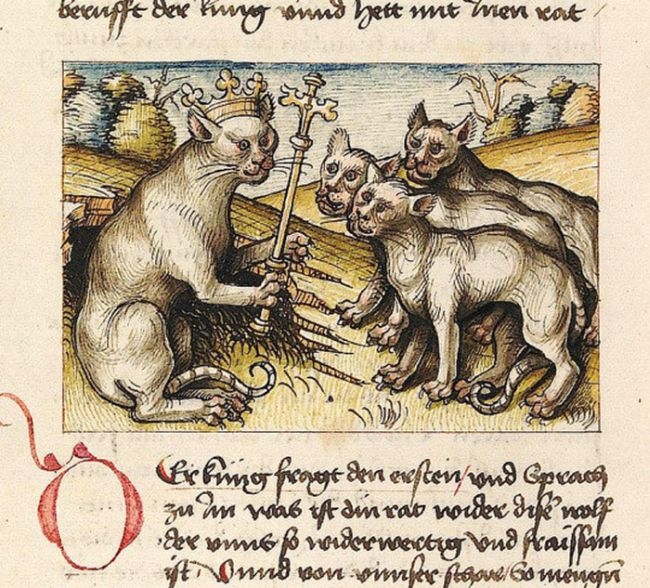 berüfft der kung vnnd hett mit Inen rat /
DEr kung fragt den ersten / vnd sprach
zu Im was ist din rat wider dise wolf
der vnns so widerwertig vnd fraissam
ist / Vnnd von vnnser schar / So